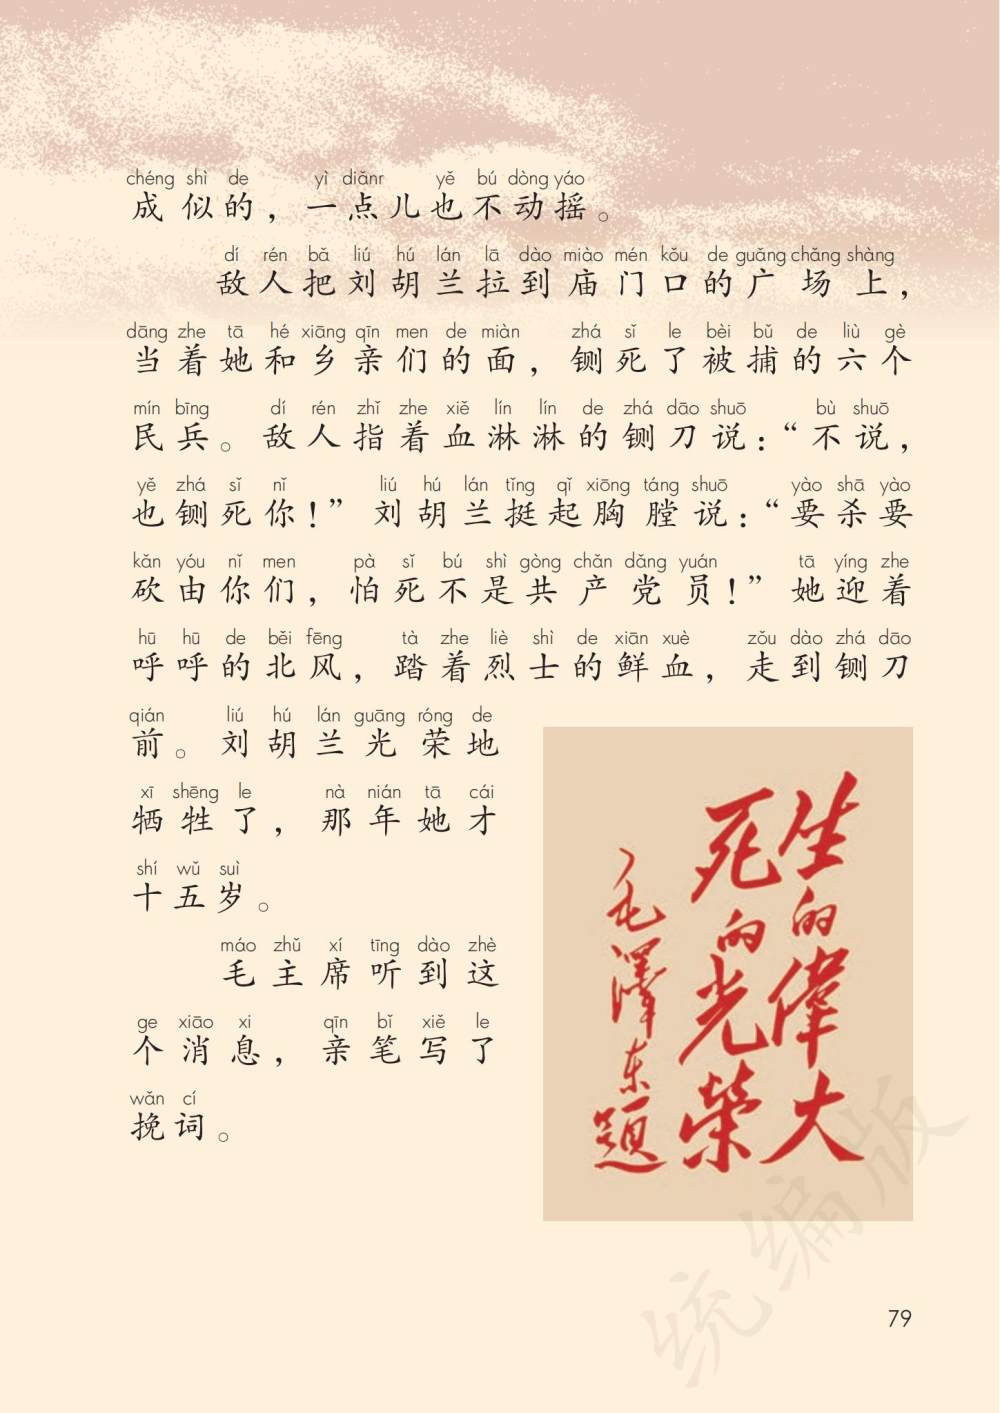 chéng shì de yì diǎnr yě bú dòng yáo
成似的，一点儿也不动摇。
dí rén bǎ liú hú lán lā dào miào mén kǒu de guǎng chǎng shàng
敌人把刘胡兰拉到庙门口的广场上，
dāng zhe tā hé xiāng qīn men de miàn zhá sǐ le bèi bǔ de liù gè
当着她和乡亲们的面，铡死了被捕的六个
mín bīng dí rén zhǐ zhe xiě lín lín de zhá dāo shuō bù shuō
民兵。敌人指着血淋淋的铡刀说：“不说，
yě zhá sǐ nǐ liú hú lán tǐng qǐ xiōng táng shuō yào shā yào
也铡死你！”刘胡兰挺起胸膛说：“要杀要
kǎn yóu nǐ men pà sǐ bú shì gòng chǎn dǎng yuán tā yíng zhe
砍由你们，怕死不是共产党员！”她迎着
hū hū de běi fēng tà zhe liè shì de xiān xuè zǒu dào zhá dāo
呼呼的北风，踏着烈士的鲜血，走到铡刀
qián liú hú lán guāng róng de
前。刘胡兰光荣地
xī shēng le nà nián tā cái
牺牲了，那年她才
shí wǔ suì
十五岁。
máo zhǔ xí tīng dào zhè
毛主席听到这
ge xiāo xi qīn bǐ xiě le
个消息，亲笔写了
wǎn cí
挽词。
生的偉大
死的光荣
毛澤东題
统编版
79